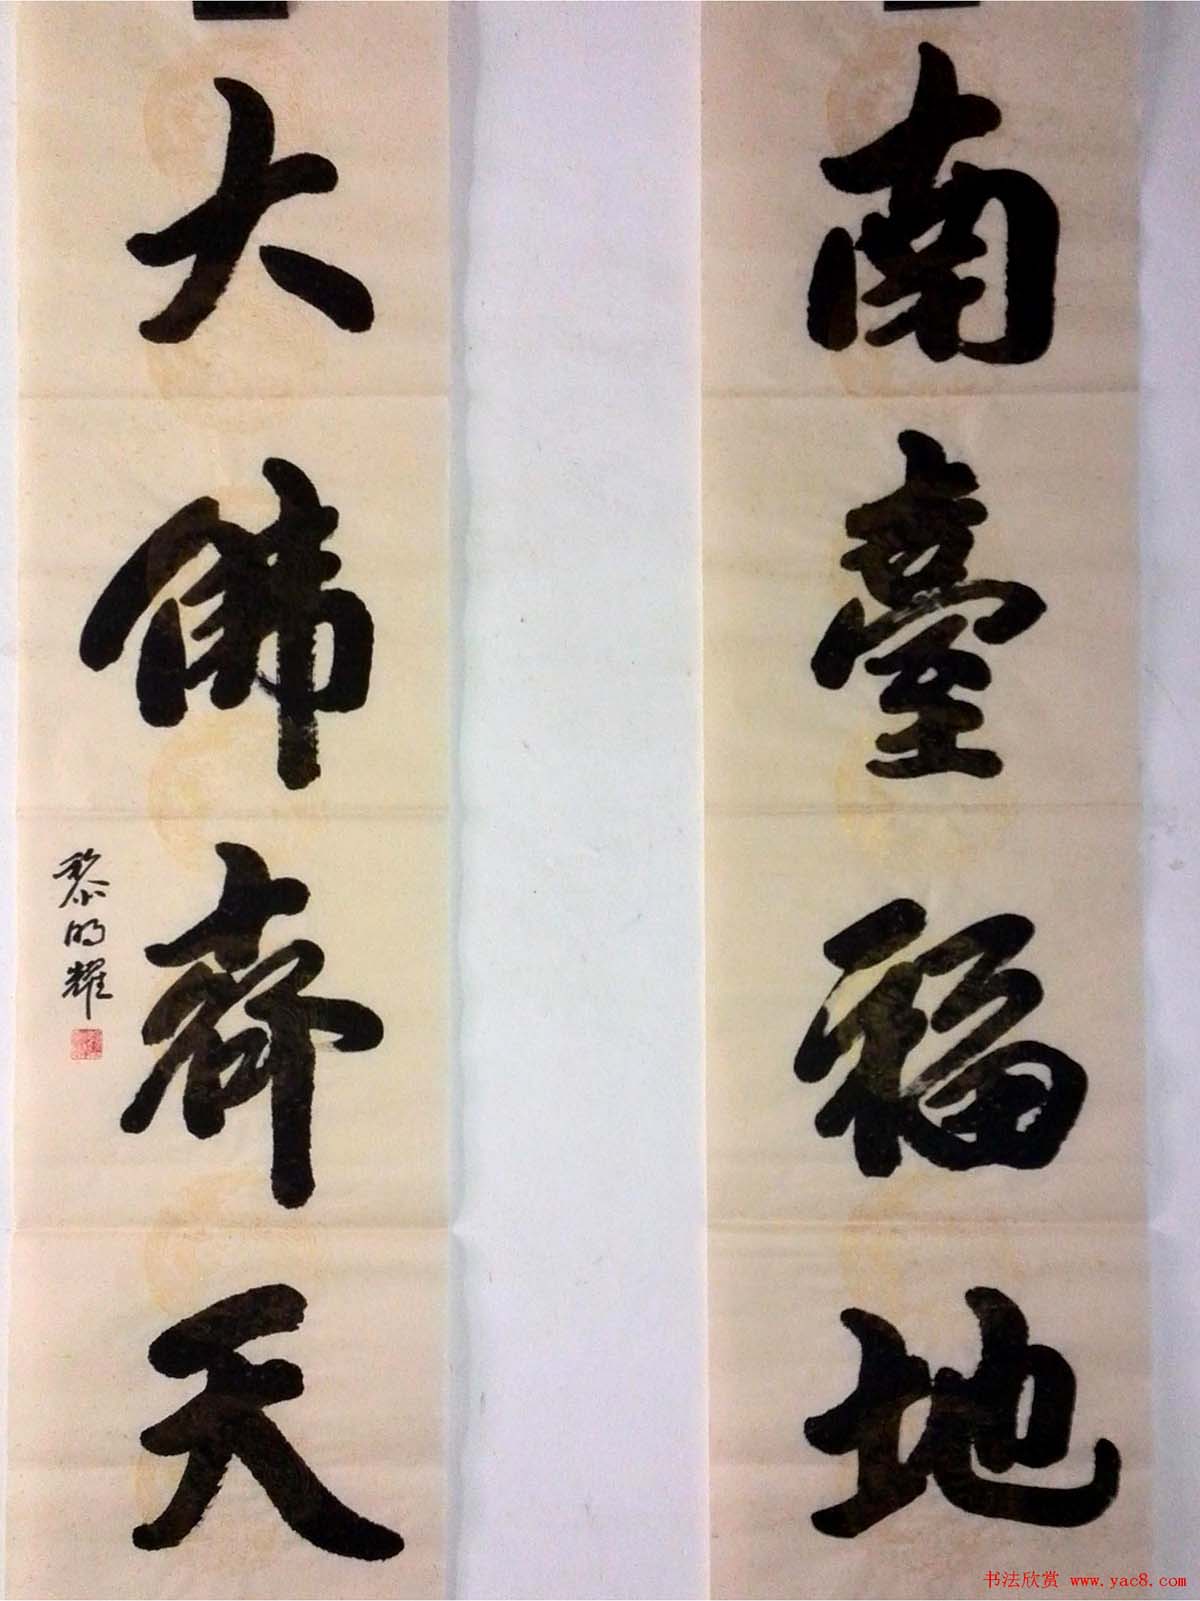 南臺福地
大師齊天
黎明耀
书法欣赏 www.yac8.com